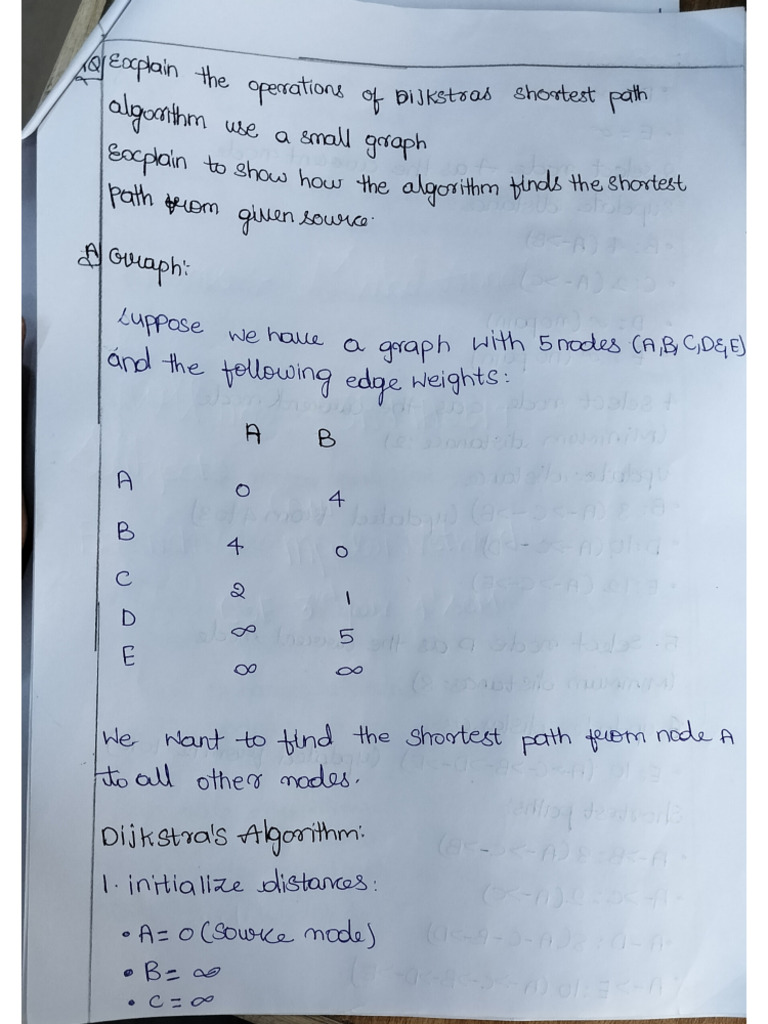 Q) Explain the operations of Dijkstras shortest path
algorithm use a small graph
Explain to show how the algorithm finds the shortest
path from given source.
A) Graph:
Suppose we have a graph with 5 nodes (A,B,C,D&E)
and the following edge weights:
A B
A 0 4
B 4 0
C 2 1
D ∞ 5
E ∞ ∞
We want to find the shortest path from node A
to all other nodes.
Dijkstra's Algorithm:
1. initialize distances:
• A = 0 (source node)
• B = ∞
• C = ∞